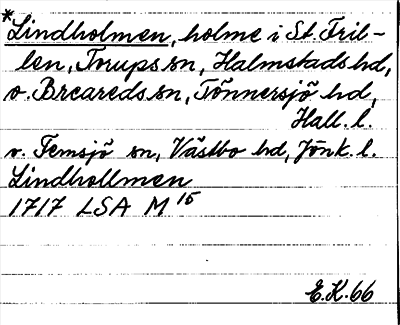 *Lindholmen, holme i St. Fril-
len, Torups sn, Halmstads hd,
o. Breareds sn, Tönnersjö hd,
Hall. l.
o. Femsjö sn, Västbo hd, Jönk. l.
Lindhollmen
1717 LSA M 15
E.K. 66